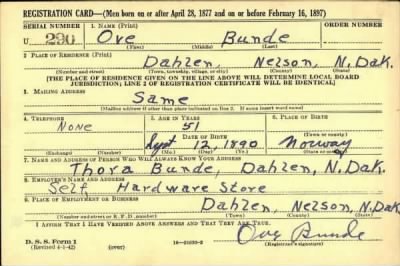 REGISTRATION CARD—(Men born on or after April 28, 1877 and on or before February 16, 1897)
SERIAL NUMBER 1. NAME (Print) ORDER NUMBER
U 290 Ove Bunde
(First) (Middle) (Last)
2. PLACE OF RESIDENCE (Print)
Dahlen, Nelson, N. Dak.
(Number and street) (Town, township, village, or city) (County) (State)
[THE PLACE OF RESIDENCE GIVEN ON THE LINE ABOVE WILL DETERMINE LOCAL BOARD
JURISDICTION; LINE 2 OF REGISTRATION CERTIFICATE WILL BE IDENTICAL]
3. MAILING ADDRESS
Same
[Mailing address if other than place indicated on line 2. If same insert word same]
4. TELEPHONE 5. AGE IN YEARS 6. PLACE OF BIRTH
None 51
DATE OF BIRTH (Town or county)
Sept 12 1890 Norway
(Exchange) (Number) (Mo.) (Day) (Yr.) (State or country)
7. NAME AND ADDRESS OF PERSON WHO WILL ALWAYS KNOW YOUR ADDRESS
Thora Bunde, Dahlen, N. Dak.
8. EMPLOYER'S NAME AND ADDRESS
Self, Hardware Store
9. PLACE OF EMPLOYMENT OR BUSINESS
Dahlen, Nelson, N. Dak.
(Number and street or R. F. D. number) (Town) (County) (State)
I AFFIRM THAT I HAVE VERIFIED ABOVE ANSWERS AND THAT THEY ARE TRUE.
D. S. S. Form 1 Ove Bunde
(Revised 4-1-42) (over) (Registrant's signature)